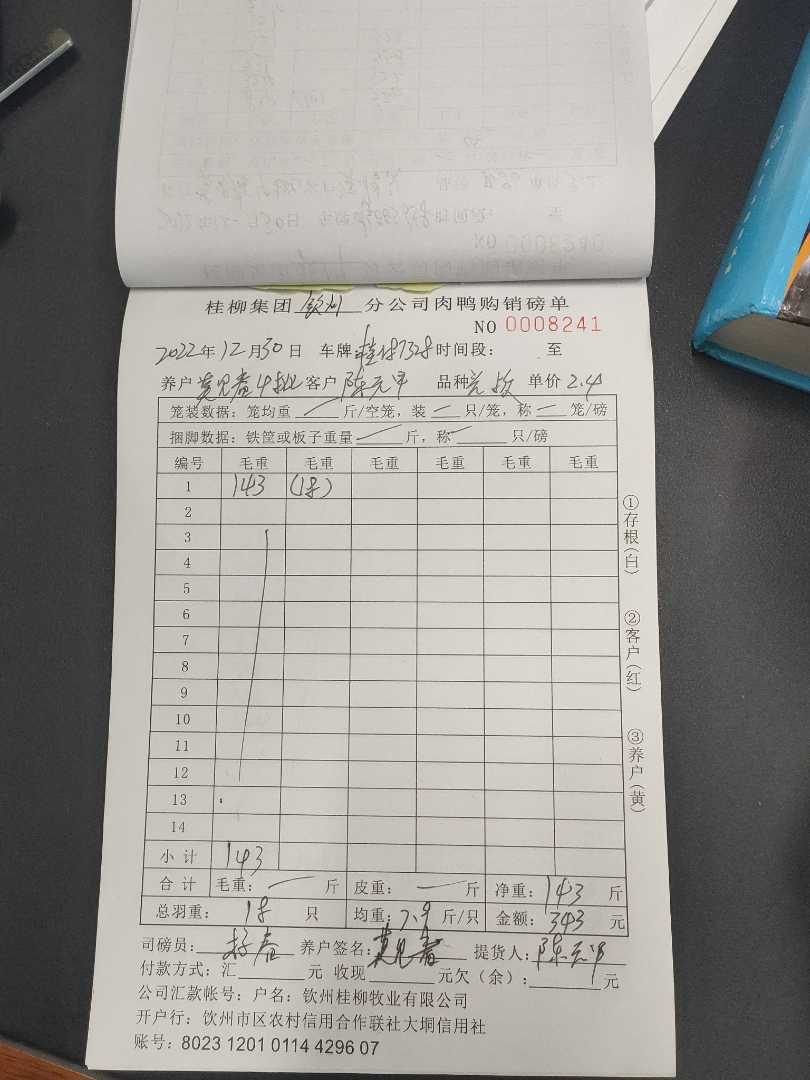 桂柳集团 钦州 分公司肉鸭购销磅单
NO 0008241
2022年12月30日 车牌 时间段： 至
养户 莫见春4批 客户 陈元甲 品种 单价 2.4
笼装数据：笼均重 斤/空笼，装 只/笼，称 笼/磅
捆脚数据：铁筐或板子重量 斤，称 只/磅
编号 毛重 毛重 毛重 毛重 毛重 毛重
1 143 (18)
2
3
4
5
6
7
8
9
10
11
12
13
14
小计 143
合计 毛重： 斤 皮重： 斤 净重：143 斤
总羽重： 18 只 均重：7.9 斤/只 金额：343 元
司磅员： 养户签名：莫见春 提货人：陈元甲
付款方式：汇 元 收现 元欠（余）： 元
公司汇款帐号：户名：钦州桂柳牧业有限公司
开户行：钦州市区农村信用合作联社大垌信用社
账号：8023 1201 0114 4296 07
①存根（白）
②客户（红）
③养户（黄）